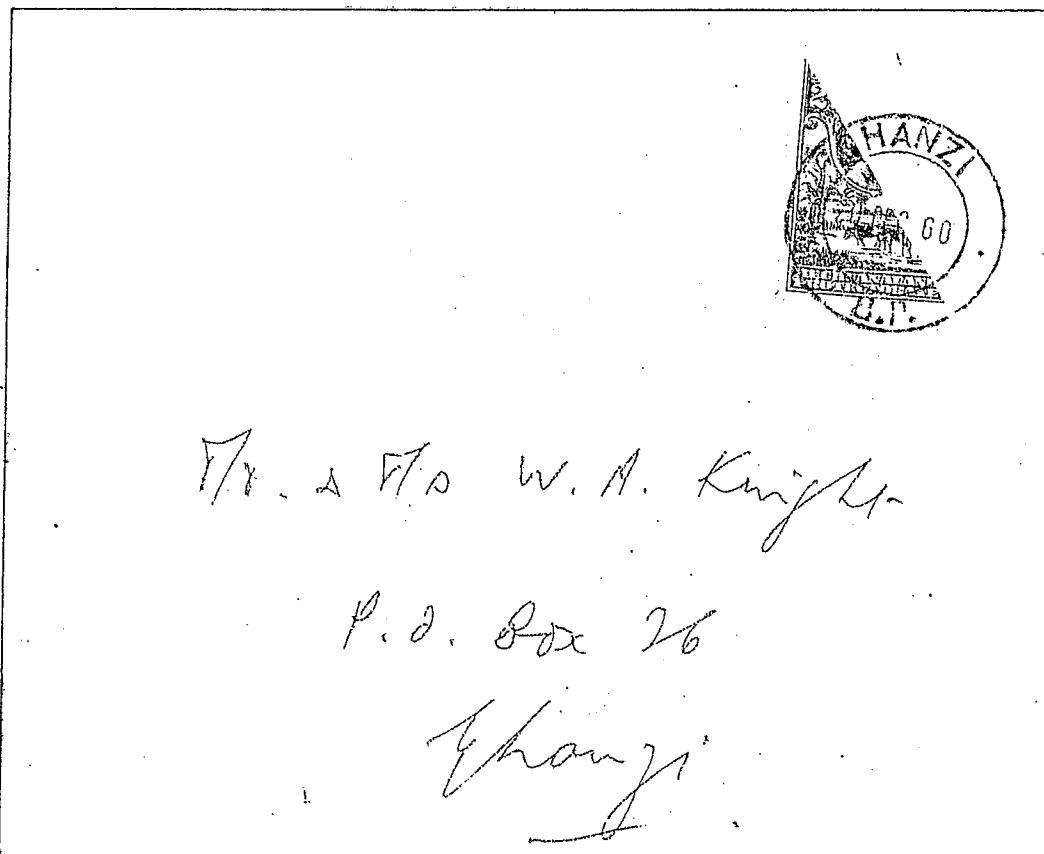 HANZI
60
B.P.
Mr. & Mrs W. A. Knight
P.O. Box 26
Ghanzi